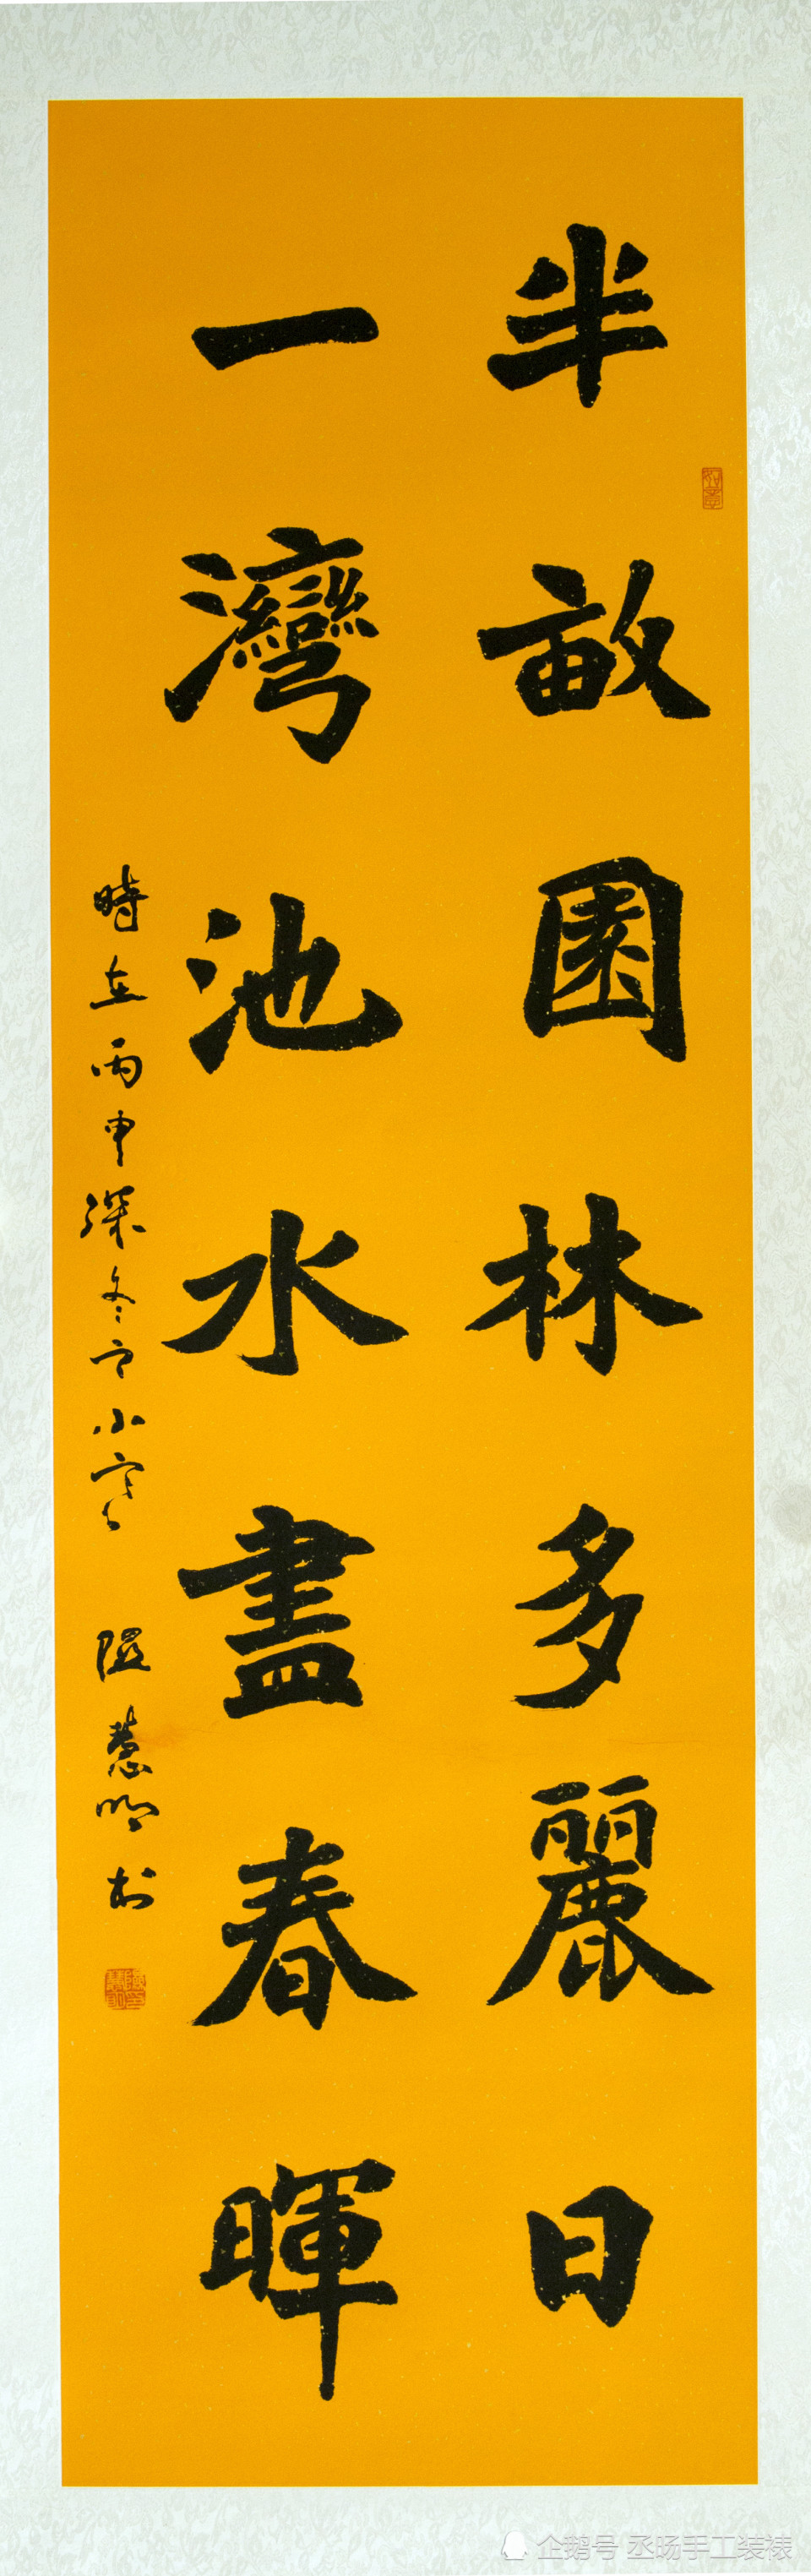 半畝園林多麗日
一灣池水盡春暉
時在丙申深冬於小寒
慧明書
企鹅号 丞旸手工装裱